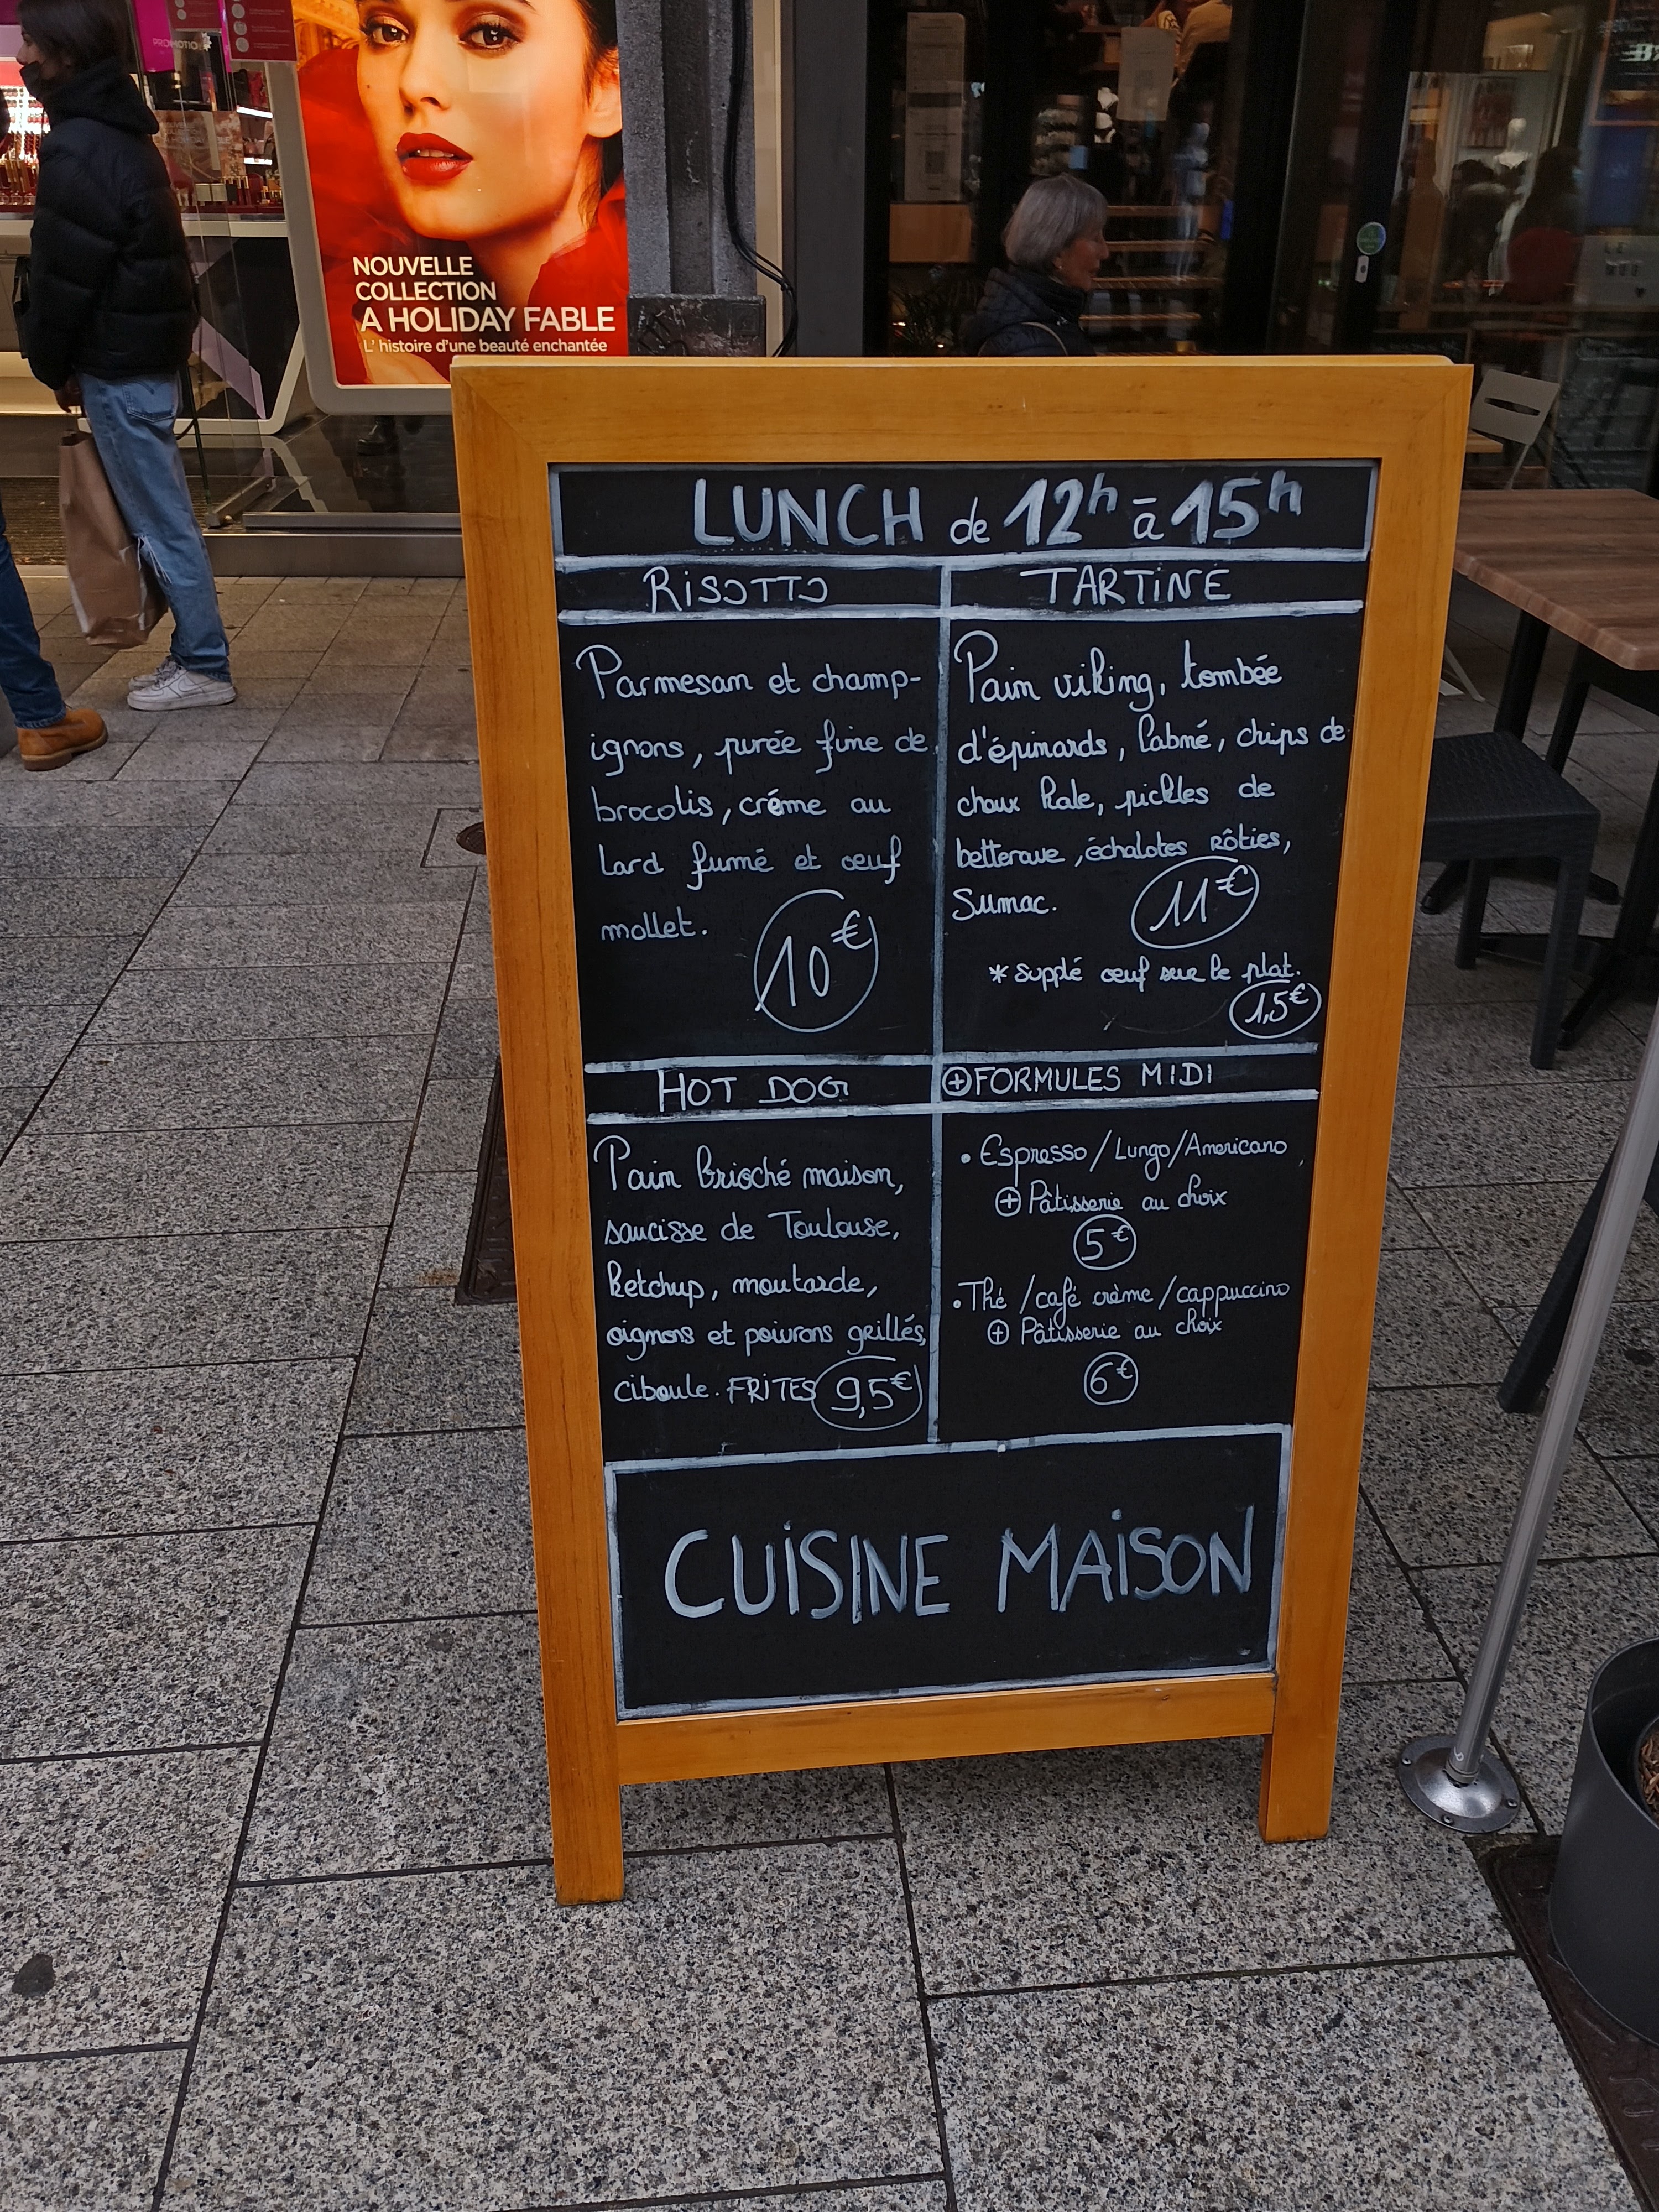 PROMOTIO
NOUVELLE
COLLECTION
A HOLIDAY FABLE
L' histoire d'une beauté enchantée
LUNCH de 12h à 15h
RISOTTO
Parmesan et champ-
ignons, purée fine de
brocolis, créme au
lard fumé et œuf
mollet.
10€
TARTINE
Pain viking, tombée
d'épinards, labné, chips de
choux kale, pickles de
betterave, échalotes rôties,
Sumac.
11€
* supplé œuf sur le plat.
1,5€
HOT DOG
Pain brioché maison,
saucisse de Toulouse,
ketchup, moutarde,
oignons et poivrons grillés,
ciboule. FRITES 9,5€
+ FORMULES MIDI
• Espresso/Lungo/Americano
+ Pâtisserie au choix
5€
• Thé /café crème/cappuccino
+ Pâtisserie au choix
6€
CUISINE MAISON